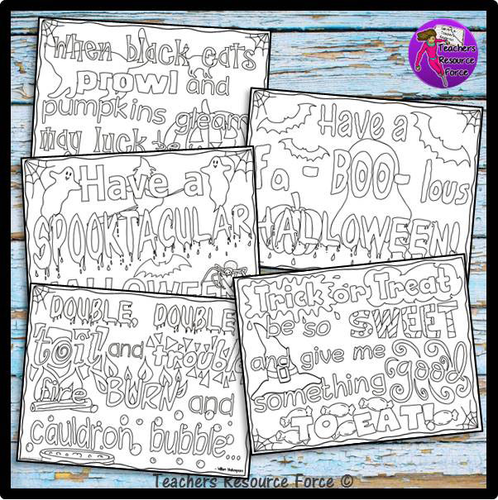 When black cats
prowl and
pumpkins gleam
may luck be
Teachers
Resource
Force
Have a
Fa - BOO - lous
HALLOWEEN!
Have a
SPOOKTACULAR
HALLOWEEN
DOUBLE, DOUBLE
toil and trouble
fire BURN and
cauldron bubble...
William Shakespeare
Trick or Treat
be so SWEET
and give me
something good
TO EAT!
Teachers Resource Force ©